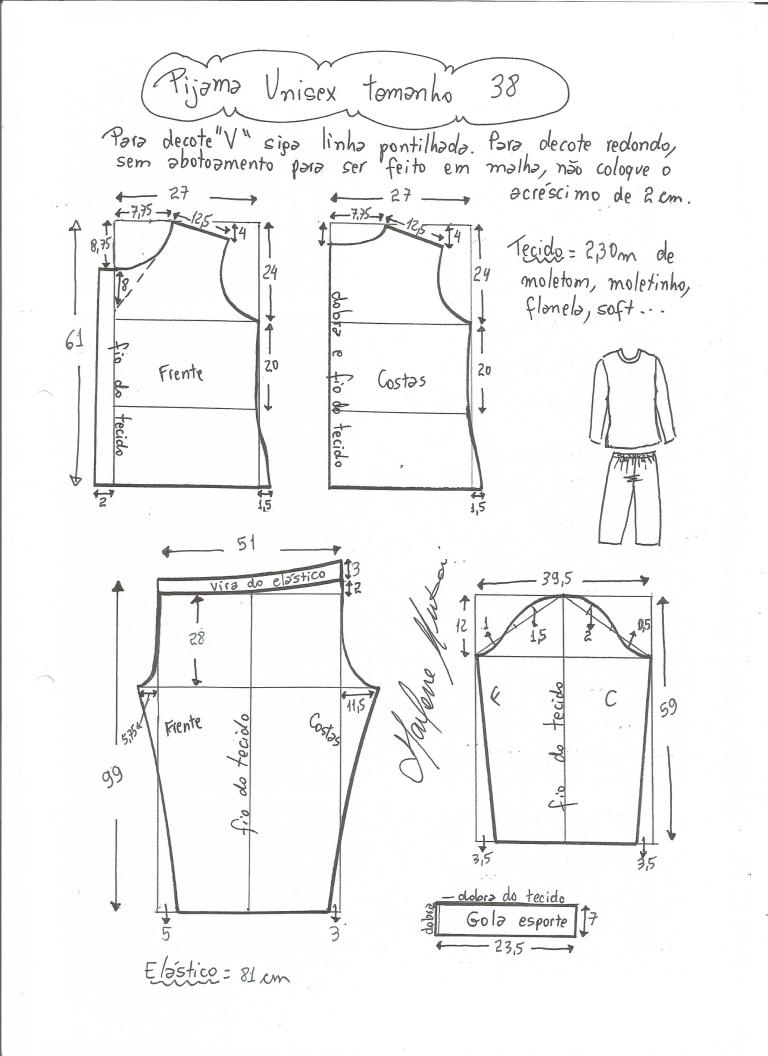 Pijama Unisex tamanho 38
Para decote "V" siga linha pontilhada. Para decote redondo,
sem abotoamento para ser feito em malha, não coloque o
acréscimo de 2 cm.
27
7,75
12,5
4
8,75
8
24
61
20
fio do tecido
Frente
2
1,5
27
7,75
12,5
4
24
dobra e fio do tecido
Costas
20
1,5
Tecido = 2,30m de
moletom, moletinho,
flanela, soft...
51
3
vira do elástico
2
28
5,75
11,5
Frente
fio do tecido
Costas
99
5
3
Elástico = 81 cm
39,5
12
1
1,5
2
0,5
F
fio do tecido
C
59
3,5
3,5
dobra do tecido
dobra
Gola esporte
7
23,5